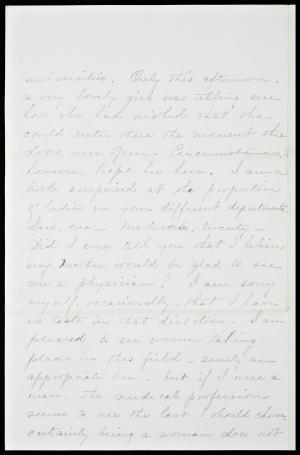 universities. Only this afternoon.
a very lovely girl was telling me
how she had wished that she
could enter there the moment the
doors were open. Circumstances,
however, kept her here. I am a
little surprised at the proportion
of ladies in your different departments.
Law, one - Medicine, twenty -
Did I ever tell you that I believe
my mother would be glad to see
me a physician? I am sorry
myself, occasionally, that I have
no taste in that direction. I am
pleased to see women taking
places in this field - surely an
appropriate one - but if I were a
man, the medical profession
seems to me the last I should choose
certainly being a woman does not